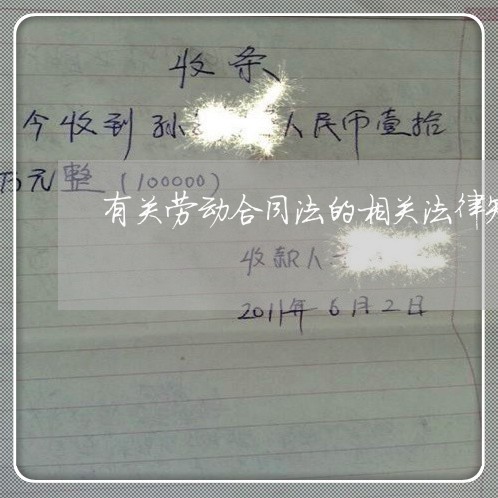 收条
今收到孙 人民币壹拾
万元整（100000）
有关劳动合同法的相关法律
收款人
2011年6月2日